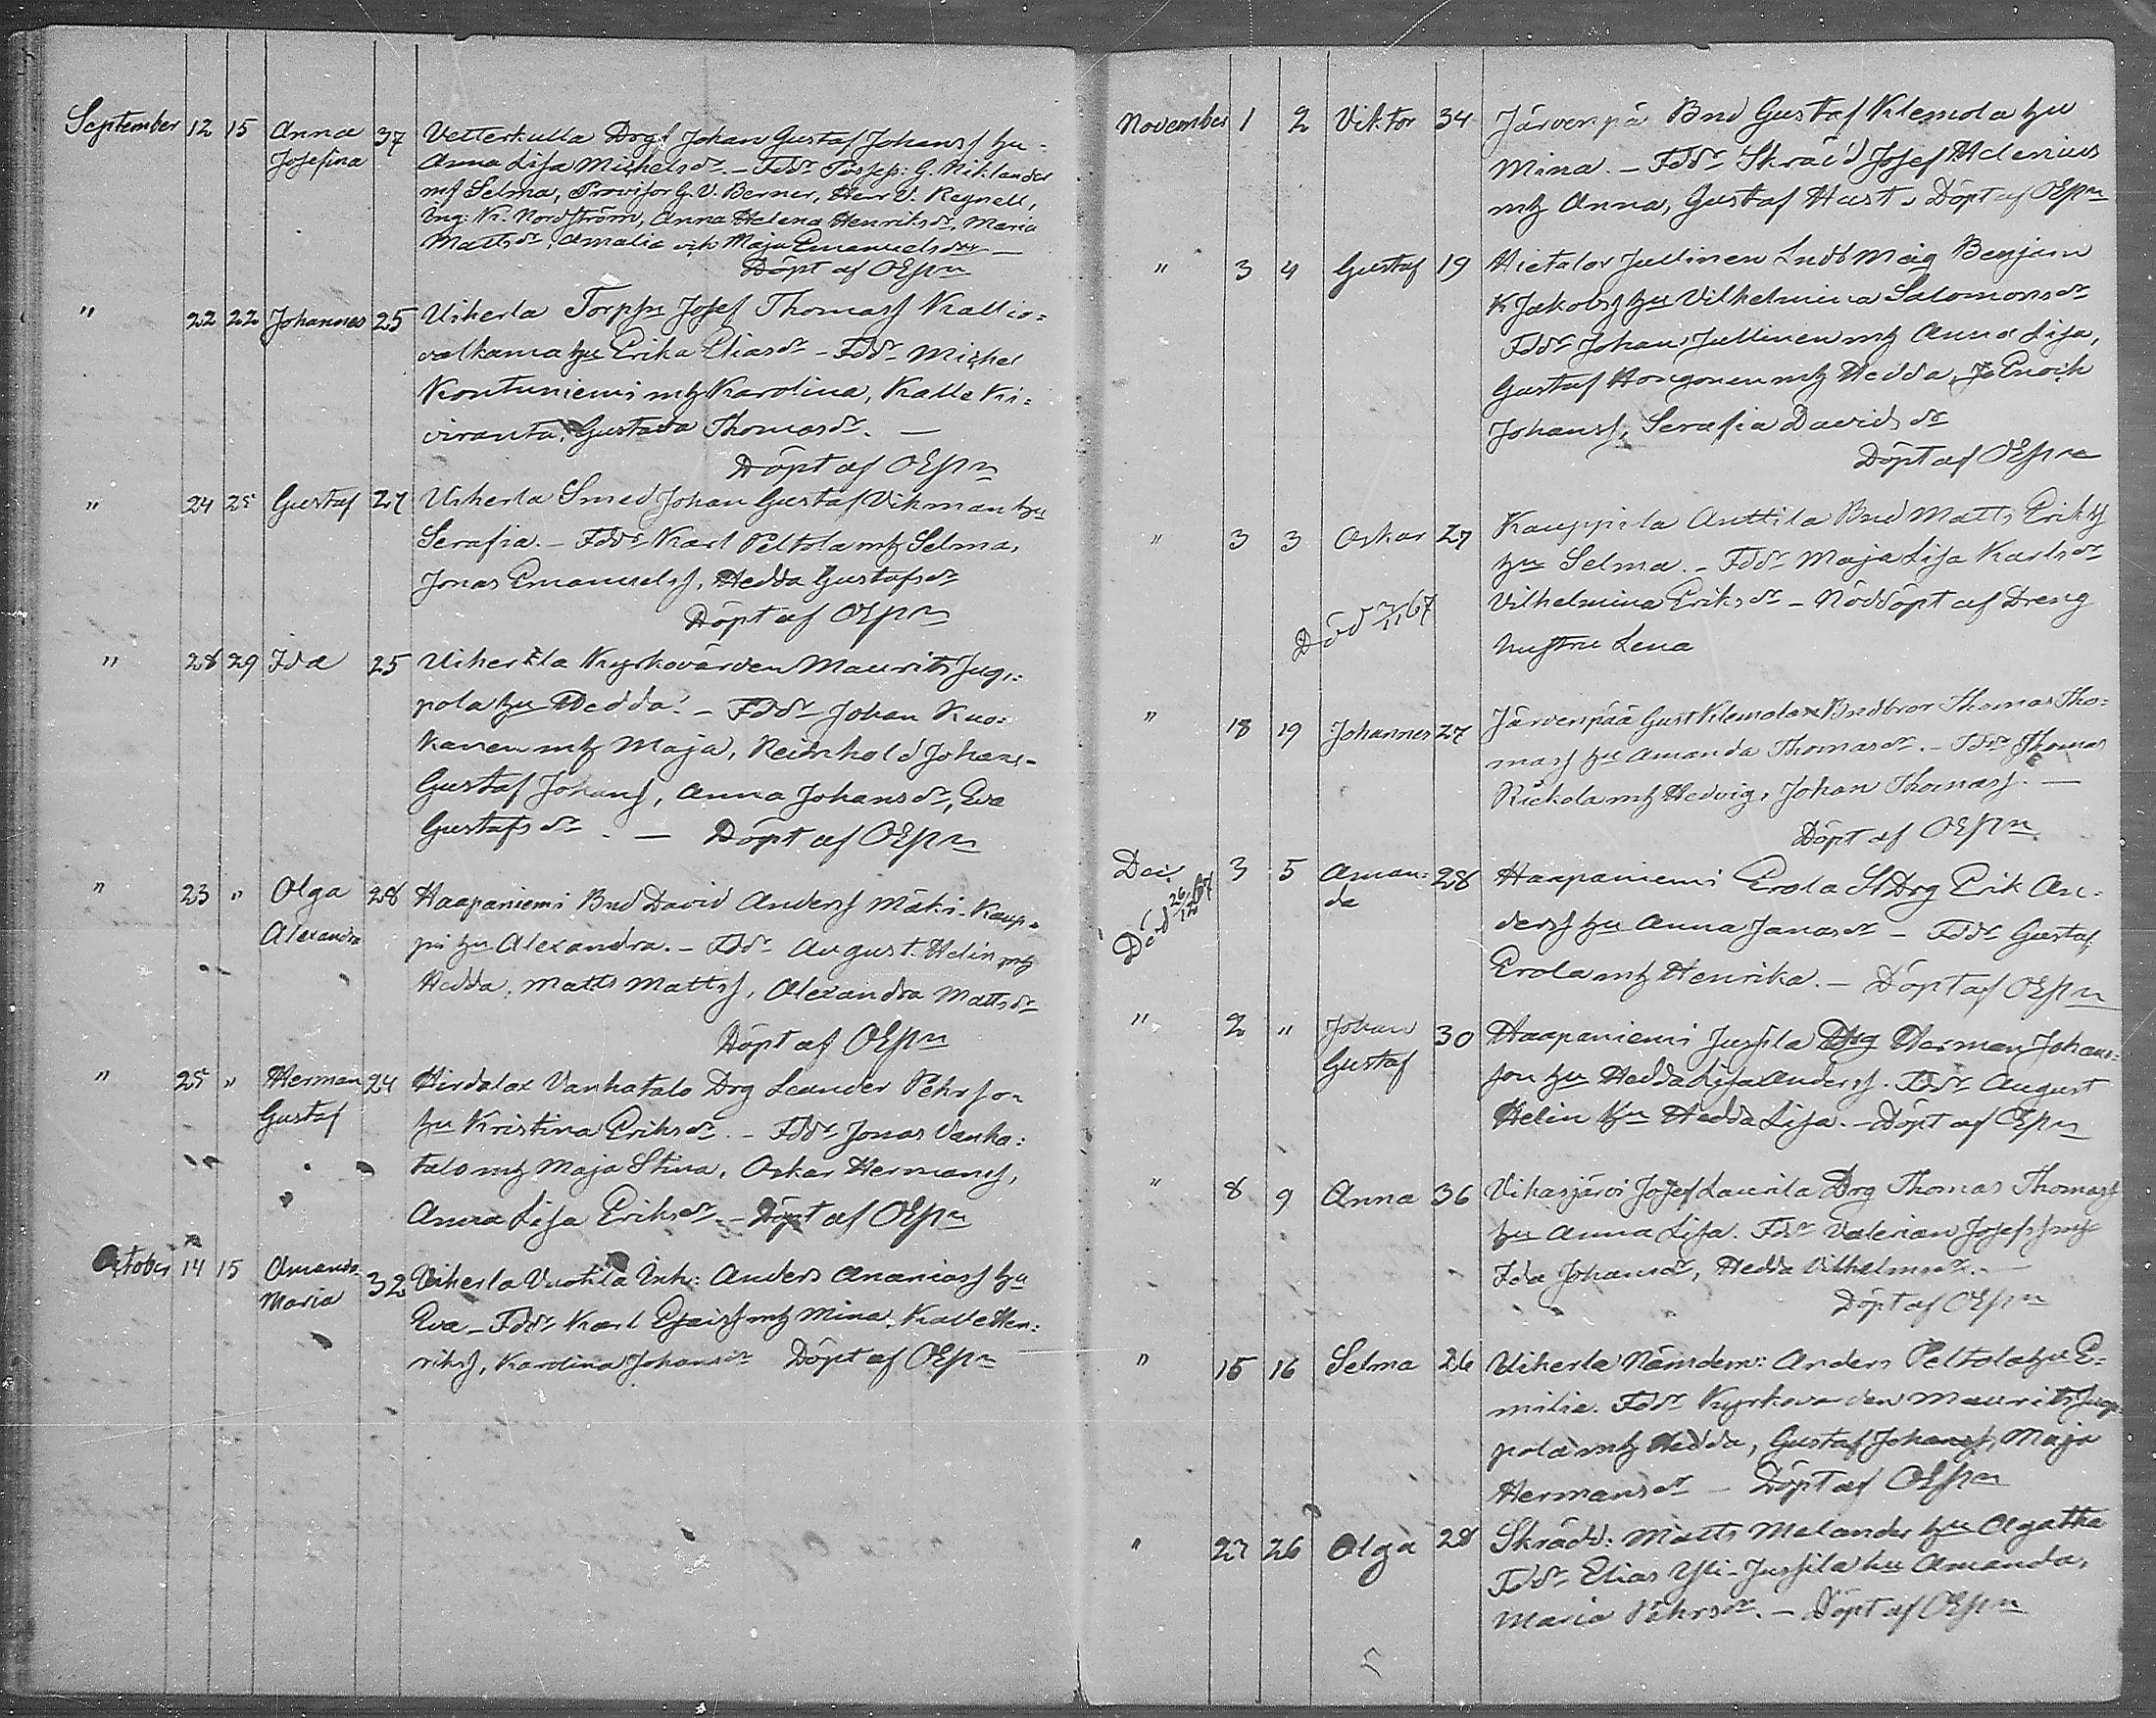 September 12 15 Anna 37 Vetterkulla Drgs Johan Gustaf Johanss hu
Josefina Anna Lisa Michelsdr. – Fddr Possess: G. Niklander
mh Selma, Provisor G. V. Berner, Henr V. Regnell,
Ing: K. Nordström, Anna Helena Henriksdr, Maria
Mattsdr, Amalia och Maja Emanuelsdr –
Döpt af OEspn
" 22 22 Johannes 25 Uiherla Torpn Josef Thomass Kallio=
valkama hu Erika Eliasdr – Fddr Michel
Kontuniemi mh Karolina, Kalle Ki=
viranta, Gustava Thomasdr. –
Döpt af OEspn
" 24 25 Gustaf 27 Uiherla Smed Johan Gustaf Vikman hu
Serafia. – Fddr Karl Peltola mh Selma,
Jonas Emanuelss, Hedda Gustafsdr
Döpt af OEspn
" 28 29 Ida 25 Uiherla Kyrkovärden Maurits Jug=
pola hu Hedda. – Fddr Johan Kuo=
kanen mh Maja, Reinhold Johans-
Gustaf Johanss, Anna Johansdr, Eva
Gustafsdr. – Döpt af OEspn
" 23 " Olga 28 Haapaniemi Bnd David Anderss Mäki-Kaup=
Alexandra pi hu Alexandra. – Fddr August Helin mh
Hedda, Matts Mattss, Alexandra Mattsdr
Döpt af OEspn
" 25 " Herman 24 Hirdalax Vanhatalo Drg Leander Pehrson
Gustaf hu Kristina Eriksdr. – Fddr Jonas Vanha=
talo mh Maja Stina, Oskar Hermanss,
Anna Lisa Eriksdr. – Döpt af OEspn
October 14 15 Amanda 32 Uiherla Vuotila Inh: Anders Ananiass hu
Maria Eva – Fddr Karl Esaiss mh Mina, Kalle Hen=
rikss, Karolina Johansdr Döpt af OEspn
November 1 2 Viktor 34 Järvenpä Bnd Gustaf Klemola hu
Mina. – Fddr Skräd Josef Helenius
mh Anna, Gustaf Hast. Döpt af OEspn
" 3 4 Gustaf 19 Hietalax Jullinen Benjam
K Jakobss hu Vilhelmina Salomonsdr
Fddr Johan Jullinen mh Anna Lisa,
Gustaf Hongonen mh Hedda, Enoch
Johanss, Serafia Davidsdr
Döpt af OEspn
" 3 3 Oskar 27 Kauppila Anttila Bnd Matts Erikss
hu Selma. – Fddr Maja Lisa Karlsdr
Död 3/11 67 Vilhelmina Eriksdr – Nöddöpt af Dreng
hustru Lena
" 18 19 Johannes 27 Järvenpää Gust Klemolax Bndbror Thomas Tho=
mass hu Amanda Thomasdr. – Fddr Thomas
Rickola mh Hedvig, Johan Thomass. –
Döpt af OEspn
Dec. 3 5 Aman= 28 Haapaniemi Erola StDrg Erik An=
da derss hu Anna Jonasdr – Fddr Gustaf
Död 26/12 67 Erola mh Henrika. – Döpt af OEspn
" 2 " Johan 30 Haapaniemi Jussila Drg Herman Johans=
Gustaf son hu Hedda Lisa Anderss. Fddr August
Helin hu Hedda Lisa. – Döpt af OEspn
" 8 9 Anna 36 Vihasjärvi Josef Laurila Drg Thomas Thomass
hu Anna Lisa. Fddr Valerian Josefss mh
Ida Johansdr, Hedda Vilhelmsdr. –
Döpt af OEspn
" 15 16 Selma 26 Uiherla Nämdem: Anders Peltola hu E=
milia. Fddr Kyrkovärden Maurits Jug
pola mh Hedda, Gustaf Johanss, Maja
Hermansdr – Döpt af OEspn
" 27 26 Olga 28 Skrädd: Matts Melander hu Agatha
Fddr Elias Yli-Jussila hu Amanda,
Maria Pehrsdr. – Döpt af OEspn